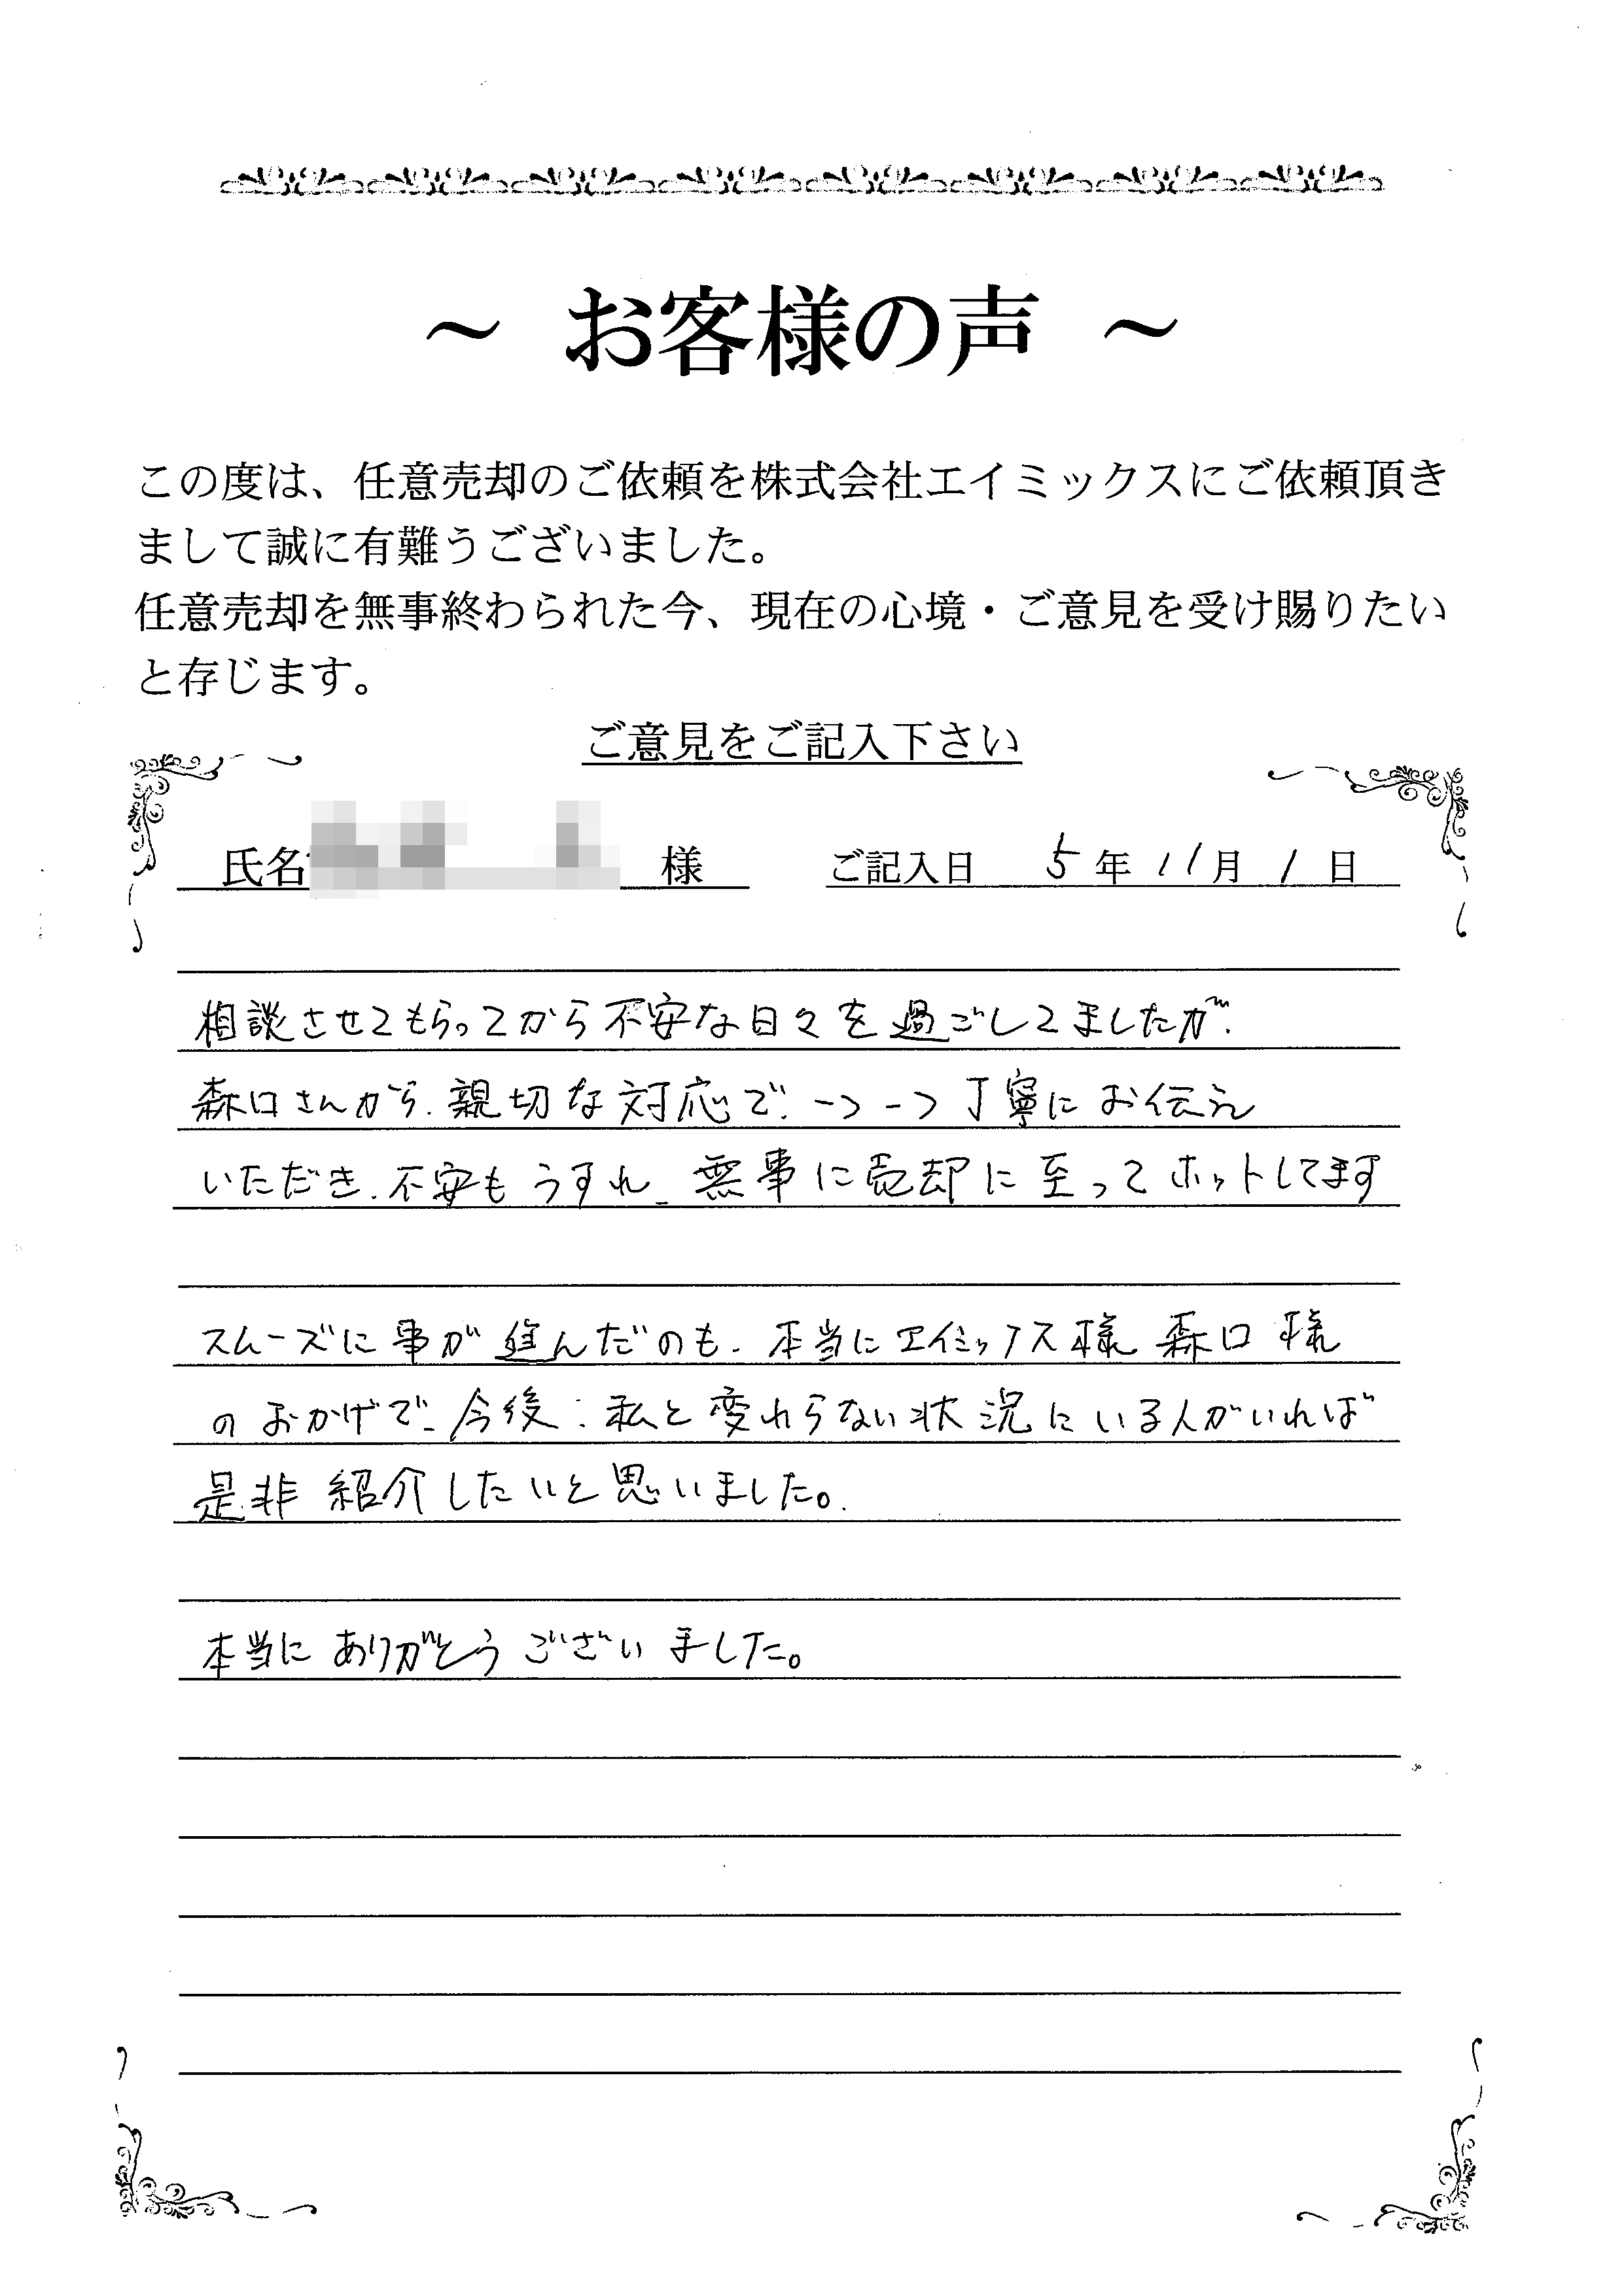 ～ お客様の声 ～
この度は、任意売却のご依頼を株式会社エイミックスにご依頼頂き
まして誠に有難うございました。
任意売却を無事終わられた今、現在の心境・ご意見を受け賜りたい
と存じます。
ご意見をご記入下さい
氏名 様 ご記入日 5年11月1日
相談させてもらってから不安な日々を過ごしてましたが、
森口さんから、親切な対応で、一つ一つ丁寧にお伝え
いただき、不安もうすれ、無事に売却に至ってホットしてます
スムーズに事が進んだのも、本当にエイミックス様 森口様
のおかげで、今後、私と変れらない状況にいる人がいれば
是非紹介したいと思いました。
本当にありがとうございました。